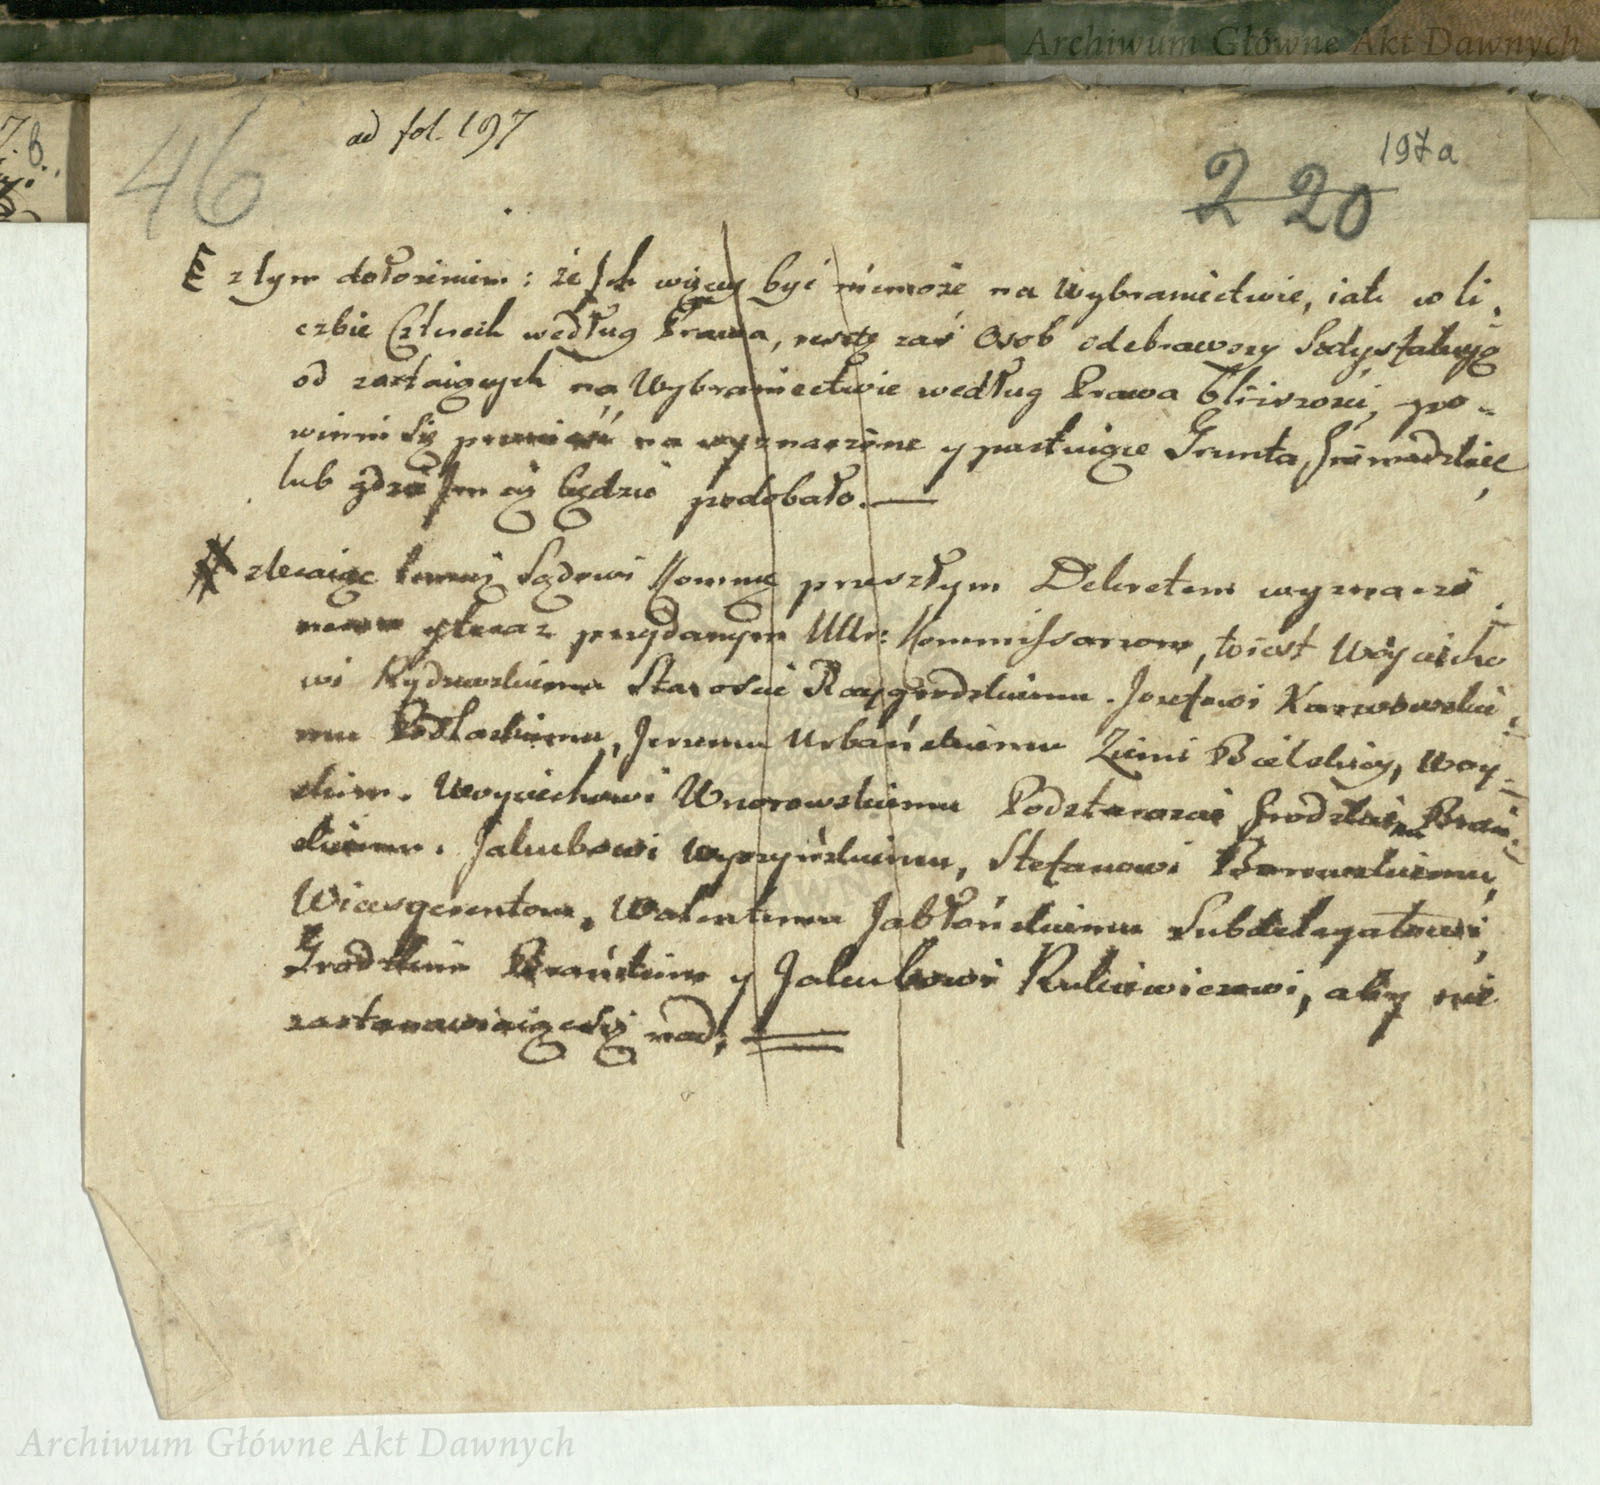 Archiwum Główne Akt Dawnych
46
ad fol. 197
197a
2 20
z tym dołożeniem: że Ich więcey być niemoże na Wybraniectwie, iak w li-
czbie Czterech według Prawa, resztę zaś Osob odebrawszy Satysfakcyę
od zostaiących na Wybraniectwie według Prawa bliższości, po-
winni się przenieść na wyznaczone y pastuiące Grunta,
lub gdzie Im się będzie podobało.
zlecaiąc temuż Sądowi Kommę przeszłym Dekretem wyznaczo
nemu y teraz przydanym Urr: Kommissarzom, to iest Woyciecho
wi Rydzewskiemu Staroście Raygrodzkiemu. Jozefowi Karwowskie-
mu Podlaskiemu, Jerzemu Urbańskiemu Ziemi Bielskiey, Woy-
skim. Woyciechowi Wnorowskiemu Podstaroście Grodzkiemu Brań-
skiemu. Jakubowi Wyszyńskiemu, Stefanowi
Wicesgerentom, Walentemu Jabłońskiemu Subdelegatowi,
Grodzkim Brańskim y Jakubowi Rutkiewiczowi, aby nie
zastanawiaiąc się nad;
Archiwum Główne Akt Dawnych